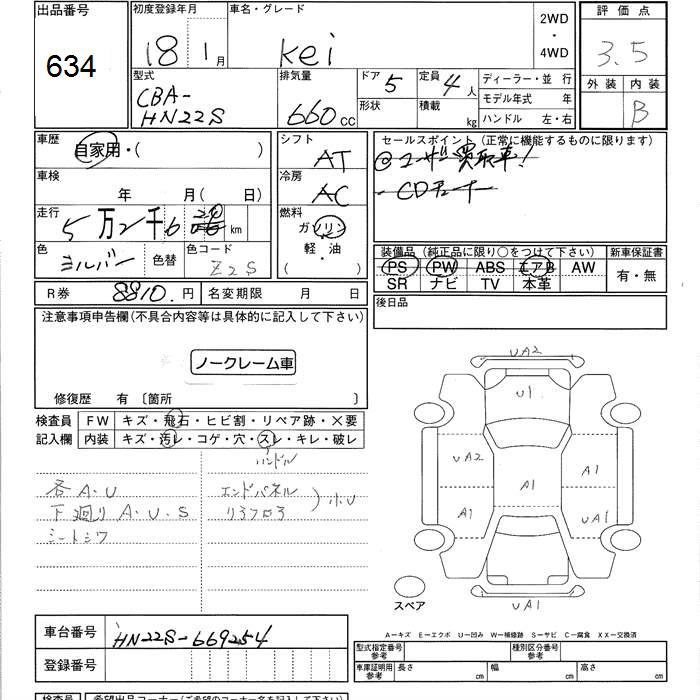 出品番号 634
初度登録年月 18 1月
車名・グレード Kei
2WD
・
4WD
評価点 3.5
外装 内装 B
型式 CBA-
HN22S
排気量 660 cc
ドア 5
形状
定員 4人
積載 kg
ディーラー・並行
モデル年式 年
ハンドル 左・右
車歴 自家用・( )
車検 年 月( 日)
走行 5万2千6 km
色 シルバー 色替 色コード Z2S
シフト AT
冷房 AC
燃料
ガソリン
軽・油
( )
セールスポイント (正常に機能するものに限ります)
@ユーザー買取車!
・CDチューナー
装備品 (純正品に限り〇をつけて下さい) 新車保証書
PS PW ABS エアB AW
SR ナビ TV 本革
有・無
R券 8810.円 名変期限 月 日
後日品
注意事項申告欄(不具合内容等は具体的に記入して下さい)
ノークレーム車
修復歴 有 〔箇所 〕
検査員 FW キズ・飛石・ヒビ割・リペア跡・×要
記入欄 内装 キズ・汚レ・コゲ・穴・スレ・キレ・破レ
ハンドル
各A.U
下廻りA.U.S
シートシワ
エンドパネル
リヤフロア
)小U
UA2
U1
UA2
A1
A1
A1
UA1
UA1
スペア
A―キズ E―エクボ U―凹み W―補修跡 S―サビ C―腐食 XX―交換済
車台番号 HN22S-669254
登録番号
型式指定番号
参考
種別区分番号
参考
車庫証明用
参考
長さ cm 幅 cm 高さ cm
検査員 希望出品コーナー(ご希望のコーナー名を記入下さい)